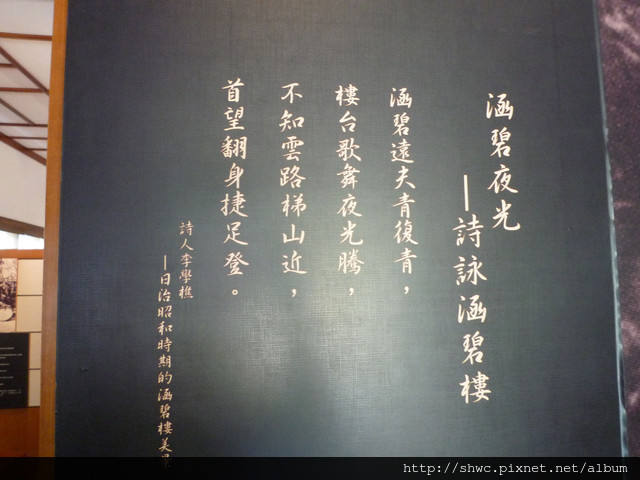 涵碧夜光
—詩詠涵碧樓
涵碧遠夫青復青，
樓台歌舞夜光騰，
不知雲路梯山近，
首望翻身捷足登。
詩人李學樵
—日治昭和時期的涵碧樓美景
http://shwc.pixnet.net/album